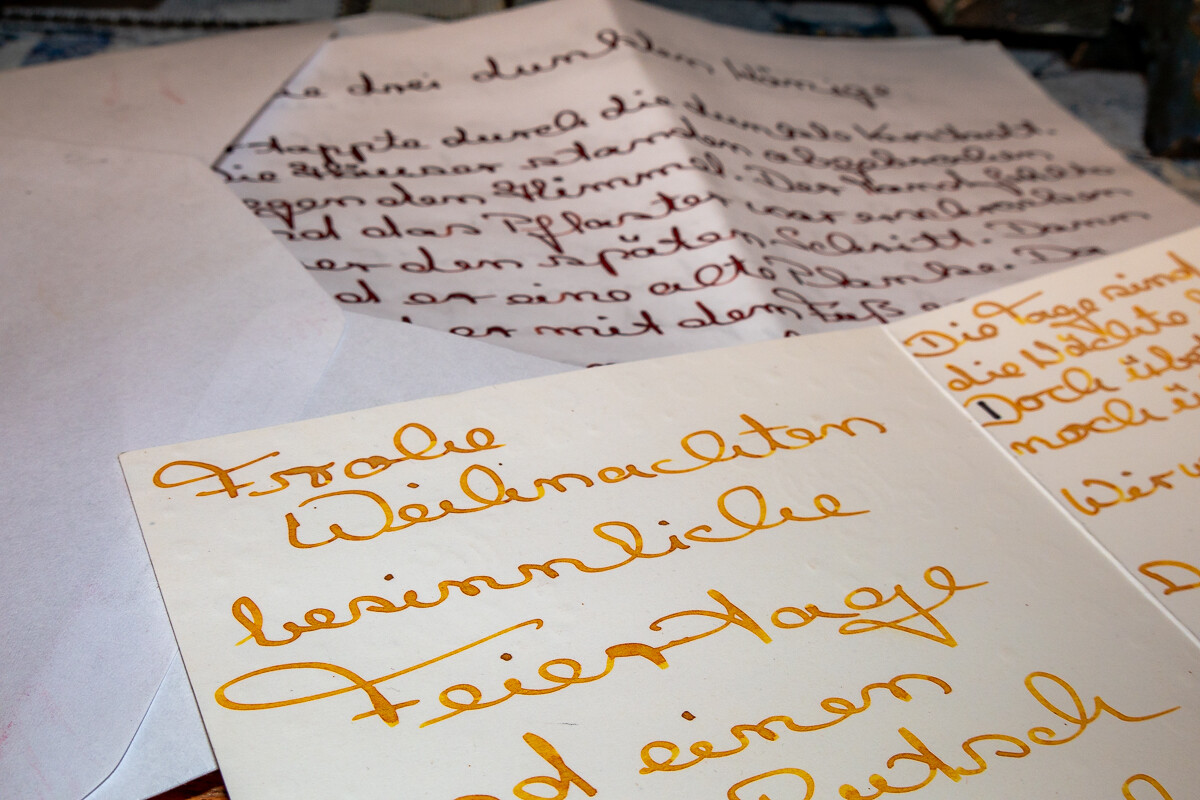 drei dunklen Könige
tappte durch die dunkle Vorstadt.
ie Häuser standen abgebrochen
egen den Himmel. Der Mond fehlte
nd das Pflaster war erschrocken
er den späten Schritt. Dann
d er eine alte Planke. Da
er mit dem Fuß
Frohe
Weihnachten
besinnliche
Feiertage
d einen
Rutsch
Die Tage sind
die Nächte
Doch
noch